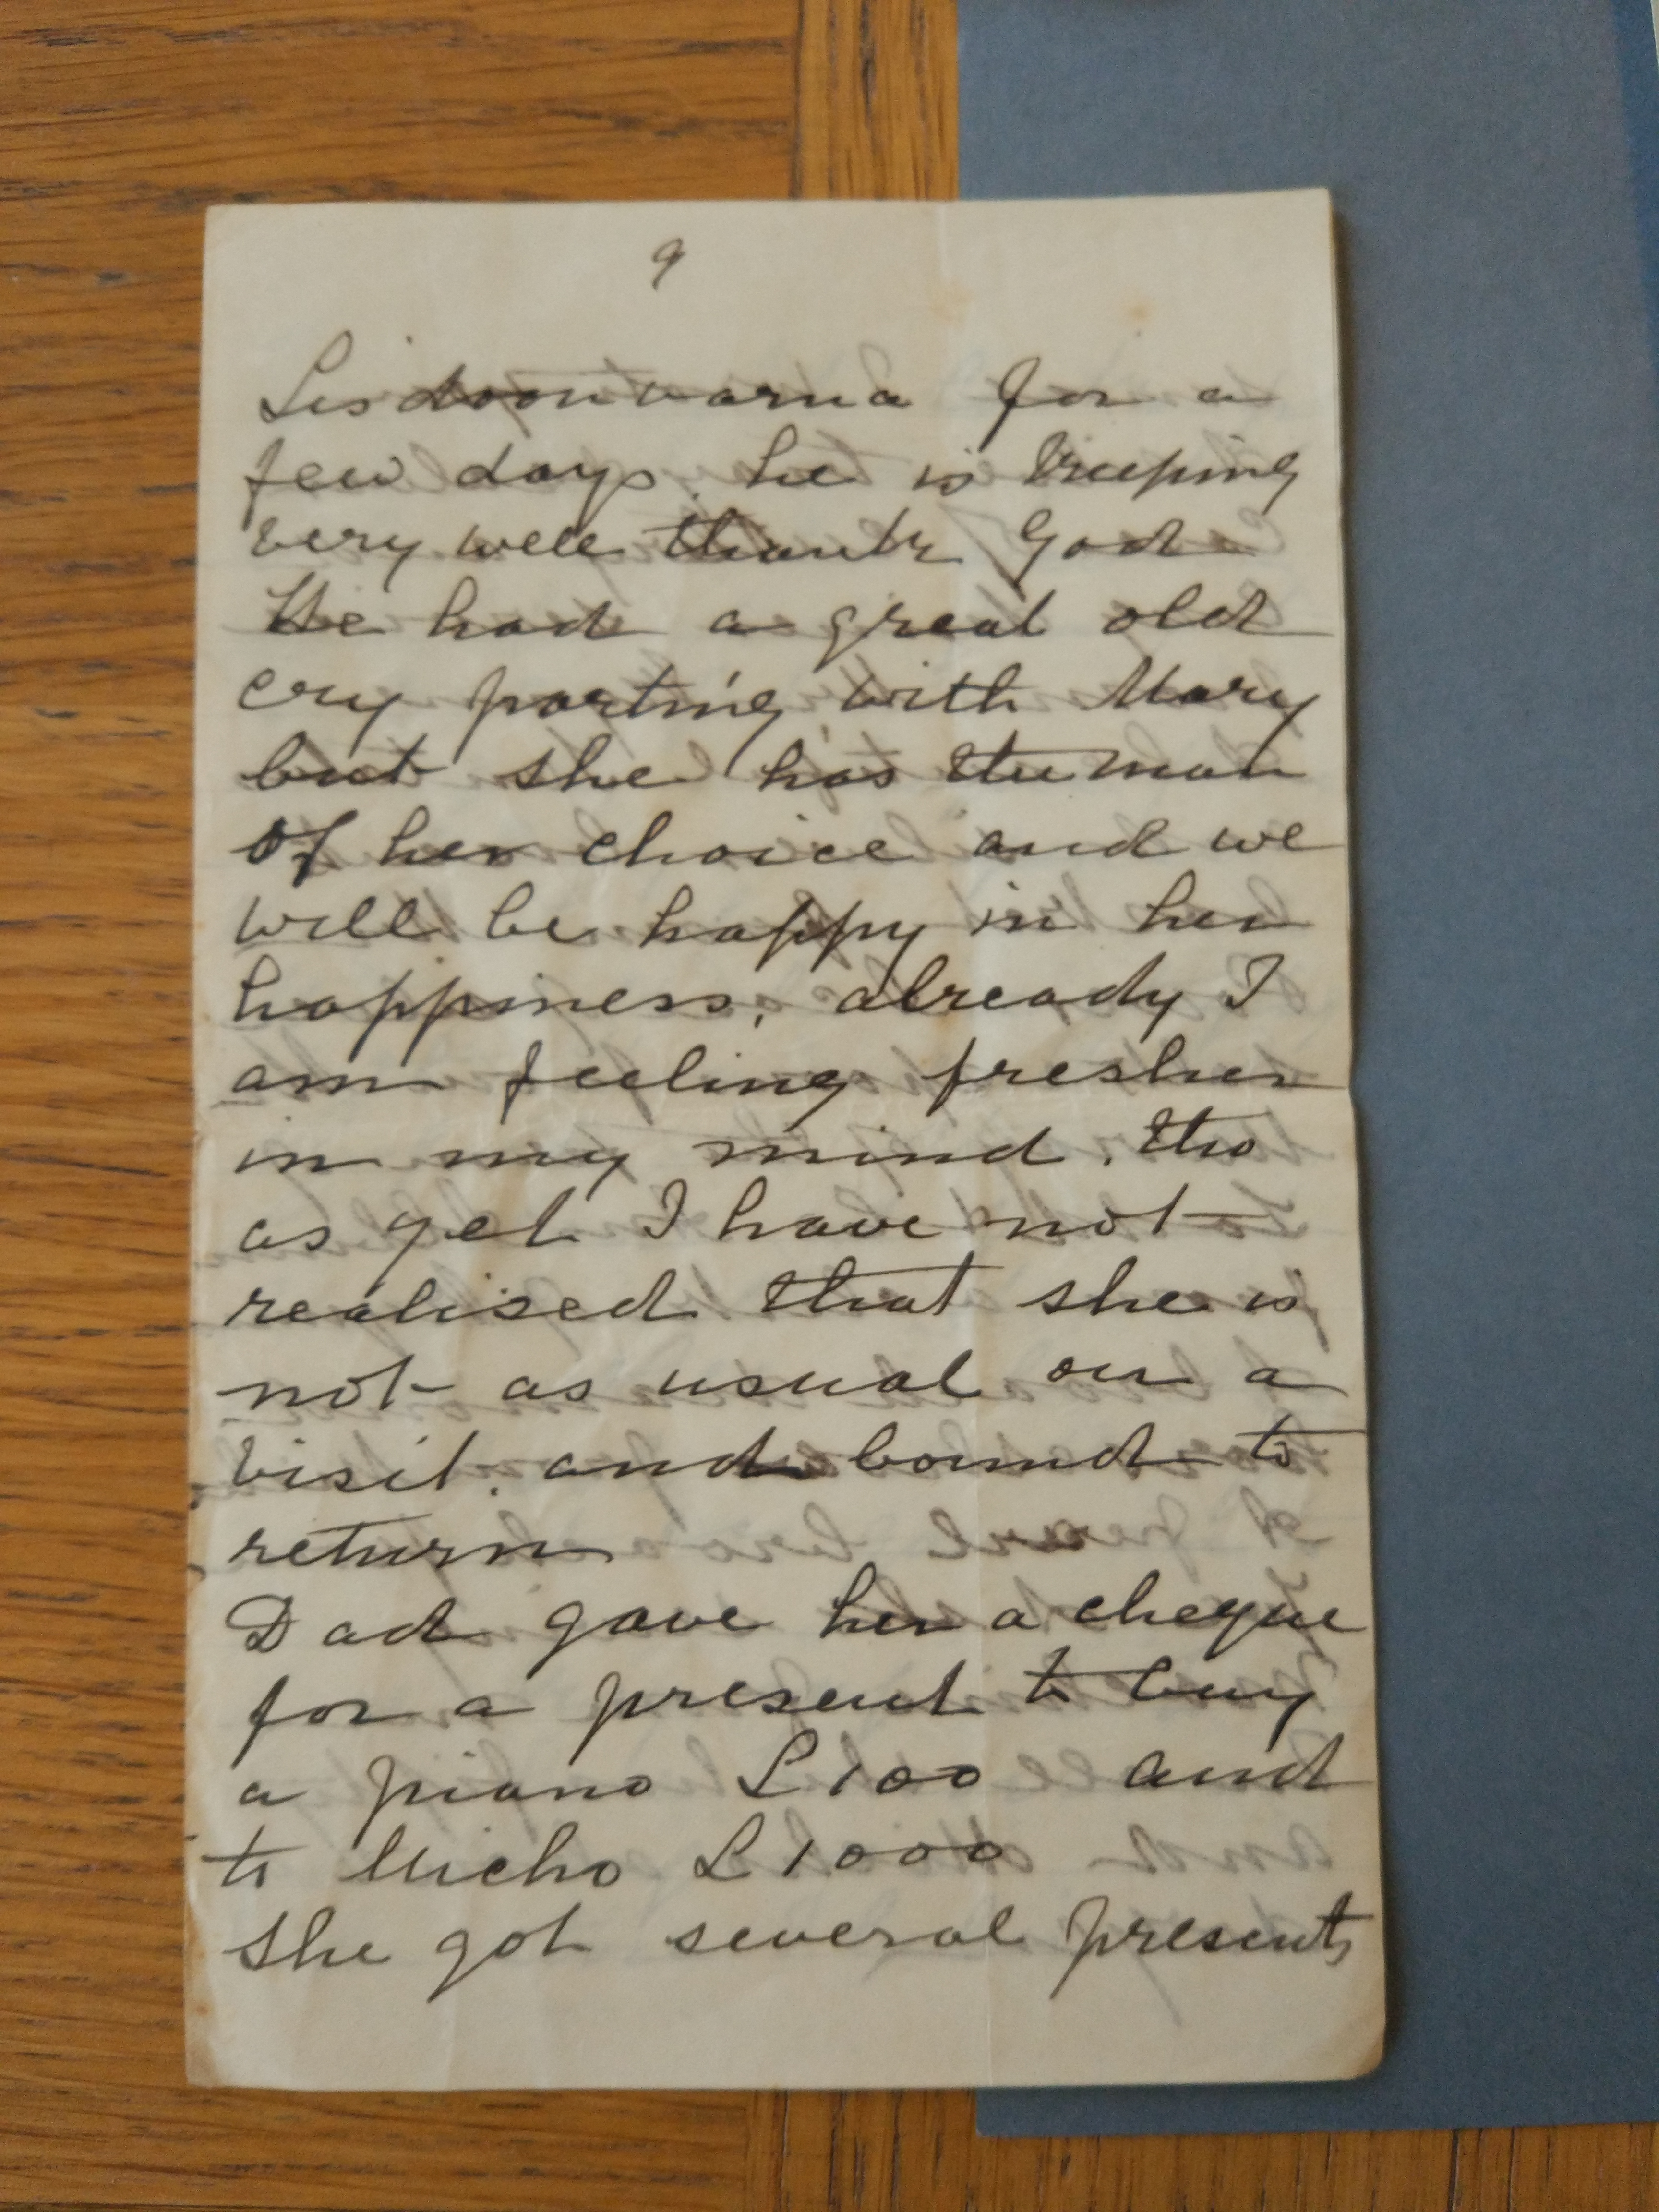 9
Lisdoonvarna for a
few days. he is keeping
very well thank God
He had a great old
cry parting with Mary
but she has the man
of her choice and we
will be happy in her
happiness, already I
am feeling fresher
in my mind. tho
as yet I have not
realised that she is
not as usual on a
visit. and bound to
return
Dad gave her a cheque
for a present to buy
a piano £100 and
to Micho £1000
she got several presents